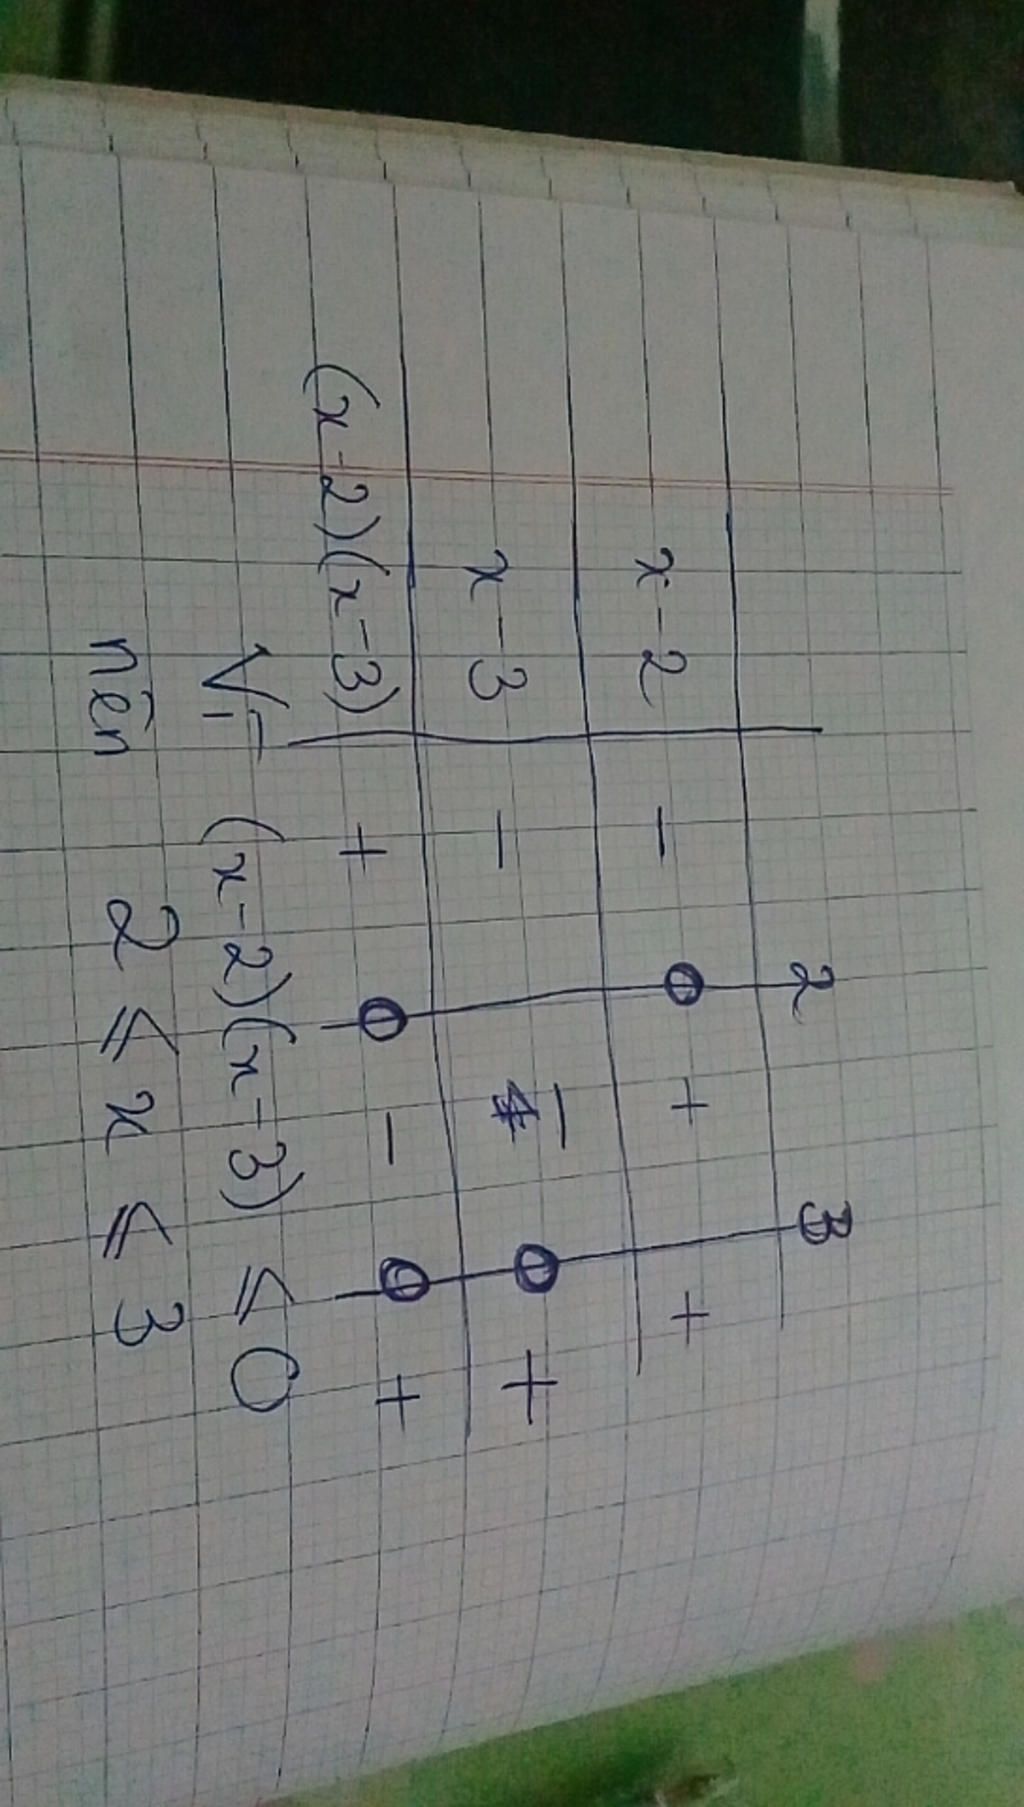 2 3
x-2 - 0 + +
x-3 - 0 - 0 +
(x-2)(x-3) + 0 - 0 +
Vì (x-2)(x-3) ⩽ 0
nên 2 ⩽ x ⩽ 3